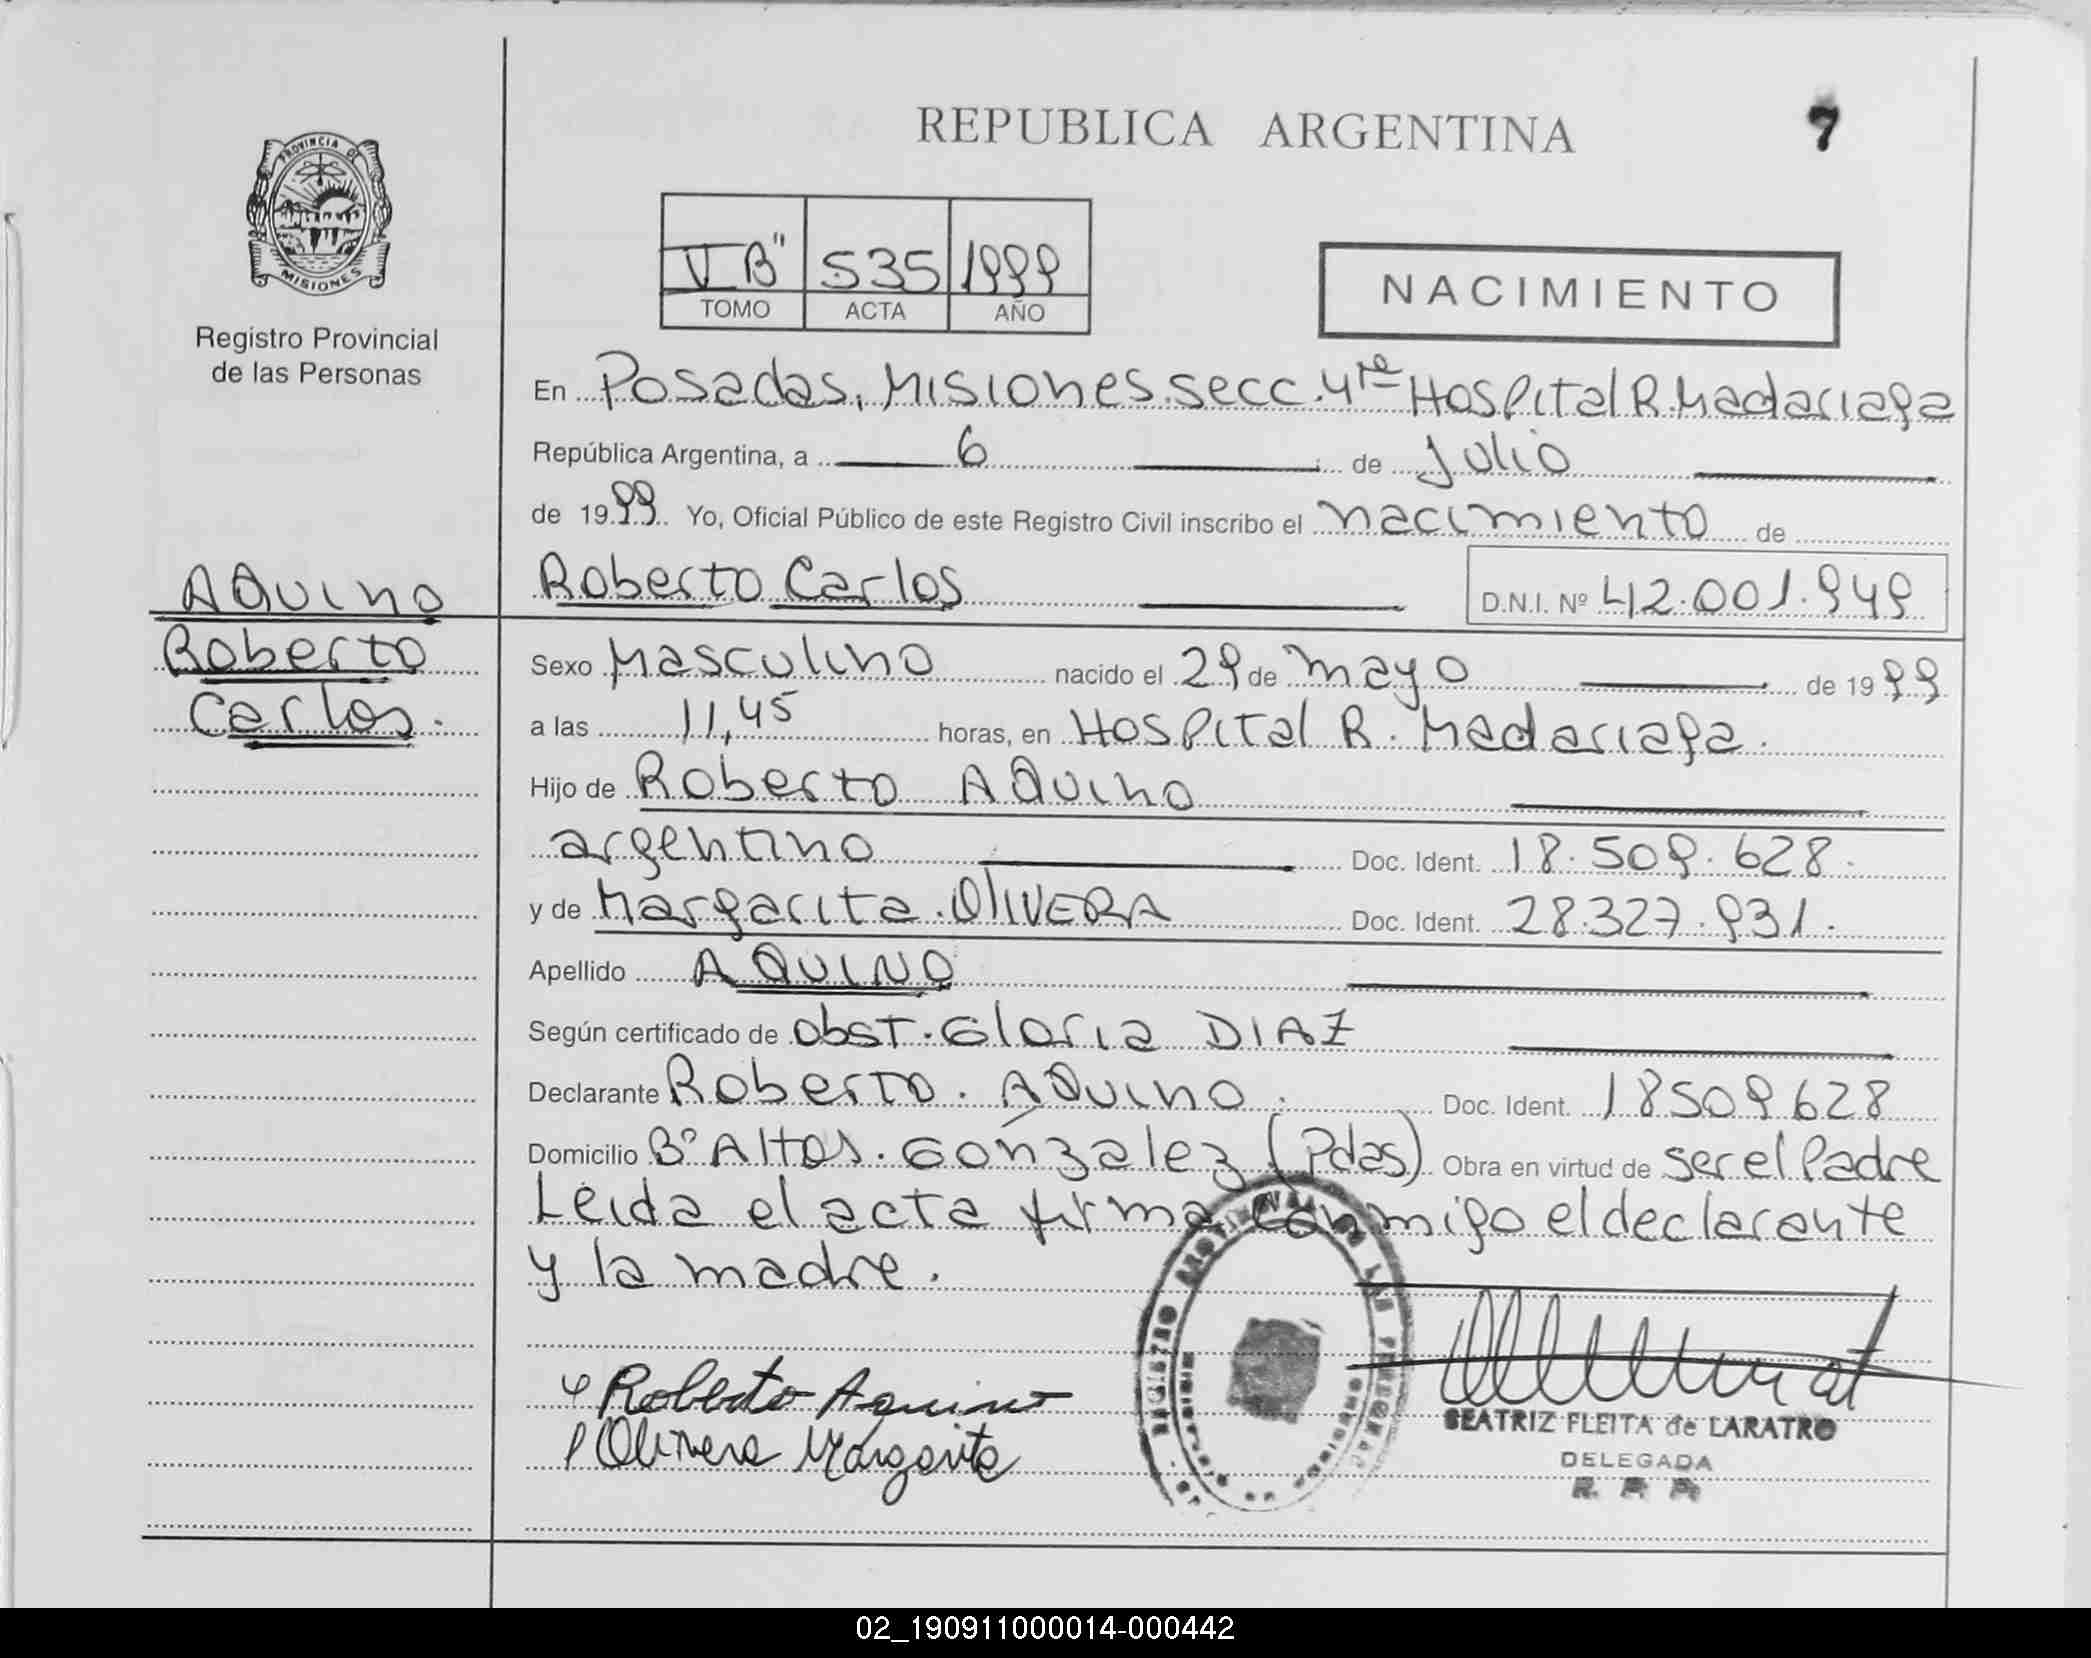 REPUBLICA ARGENTINA
7
PROVINCIA DE
MISIONES
Registro Provincial
de las Personas
V B" 535 1999
TOMO ACTA AÑO
NACIMIENTO
En Posadas, Misiones. secc. 4ta Hospital R. Madariaga
República Argentina, a 6 de Julio
de 1999. Yo, Oficial Público de este Registro Civil inscribo el nacimiento de
Aquino
Roberto
Carlos.
Roberto Carlos D.N.I. Nº 42.001.949
Sexo Masculino nacido el 29 de mayo de 1999
a las 11,45 horas, en Hospital R. Madariaga.
Hijo de Roberto Aquino
argentino Doc. Ident. 18.509.628.
y de Margarita. OlIVERA Doc. Ident. 28.327.931.
Apellido AQUINO
Según certificado de obst. Gloria DIAZ
Declarante Roberto. Aquino. Doc. Ident. 18509628
Domicilio Bº Altos. González (Pdas) Obra en virtud de ser el Padre
Leida el acta firma conmigo el declarante
y la madre.
Roberto Aquino
Olivera Margarita
BEATRIZ FLEITA de LARATRO
DELEGADA
R. P. P.
02_190911000014-000442